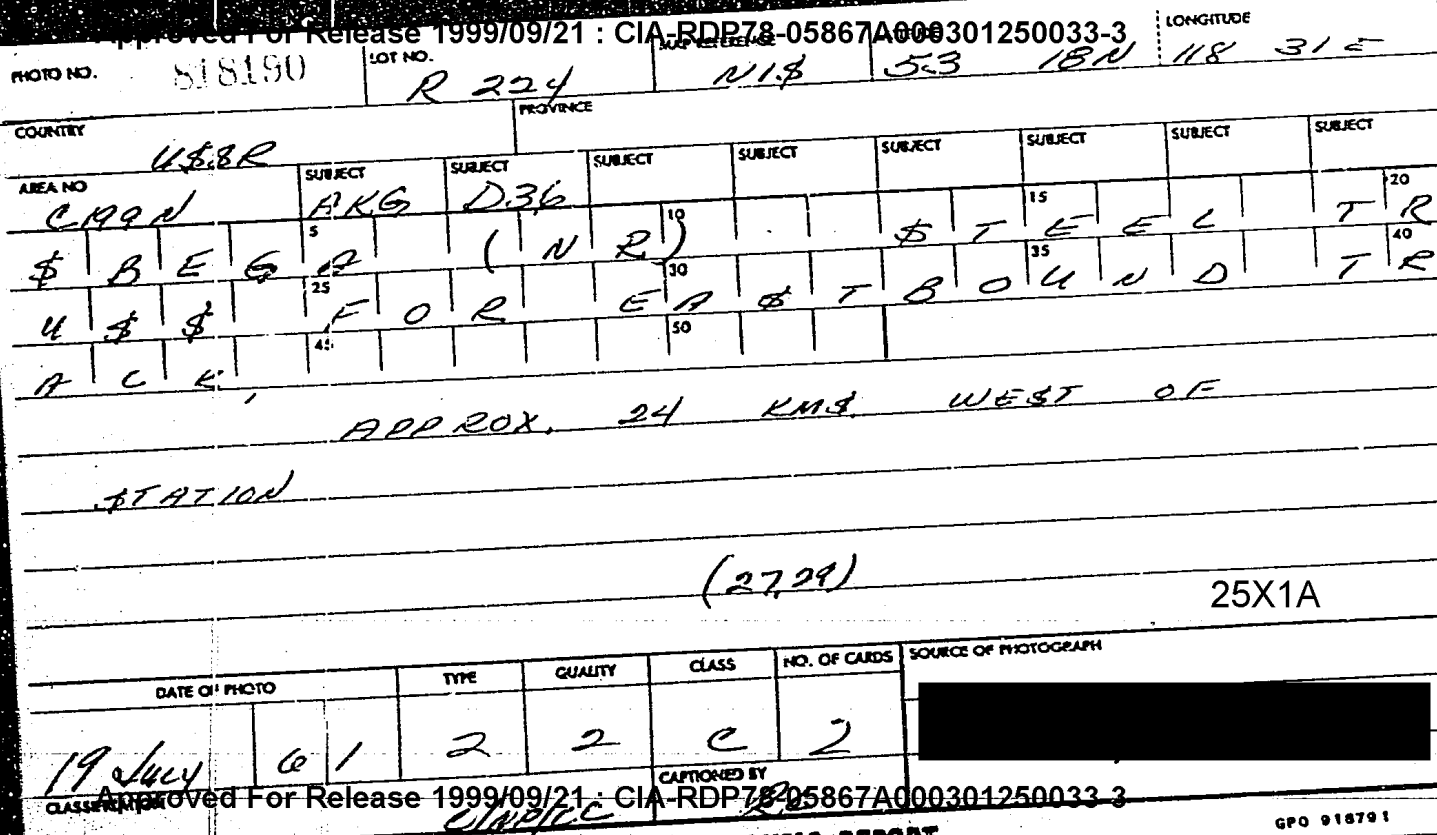 Approved For Release 1999/09/21 : CIA-RDP78-05867A000301250033-3
PHOTO NO. 818190 LOT NO. R 224 MAP REFERENCE N1$ 53 18N LONGITUDE 118 31 E
COUNTRY U$$R PROVINCE
AREA NO C199N SUBJECT AKG SUBJECT D36 SUBJECT SUBJECT SUBJECT SUBJECT SUBJECT SUBJECT
$BEGA (NR). $TEEL TR
5 10 15 20
U$$ FOR EA$TBOUND TR
25 30 35 40
ACK,
45 50
APPROX. 24 KM$. WE$T OF
$TATION
(27,29)
25X1A
DATE OF PHOTO TYPE QUALITY CLASS NO. OF CARDS SOURCE OF PHOTOGRAPH
19 July 61 2 2 C 2
CLASSIFICATION C/NP/CC CAPTIONED BY
Approved For Release 1999/09/21 : CIA-RDP78-05867A000301250033-3
REPORT
GPO 918791